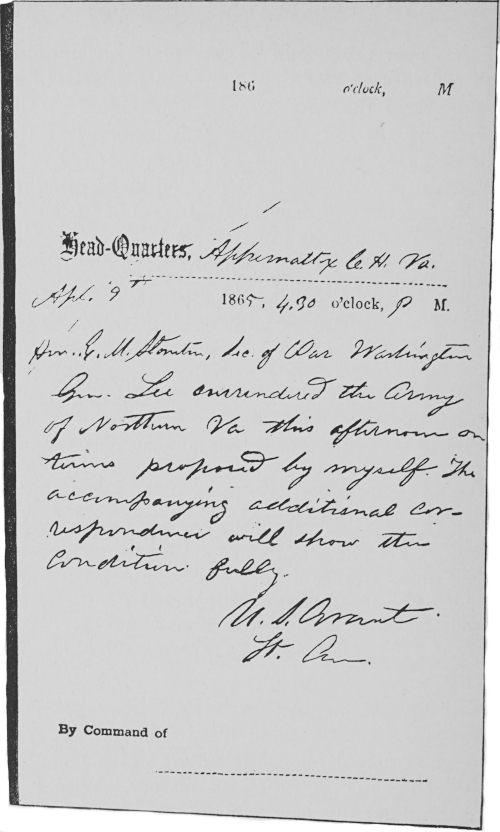 186 o'clock, M
Head-Quarters, Appomattx C. H. Va.
Apl. 9th 1865, 4.30 o'clock, P M.
Hon. E. M. Stanton, Sec. of War Washington
Gen. Lee surrendered the Army
of Northern Va this afternoon on
terms proposed by myself. The
accompanying additional cor-
respondence will show the
Condition fully.
U. S. Grant
Lt. Gn.
By Command of